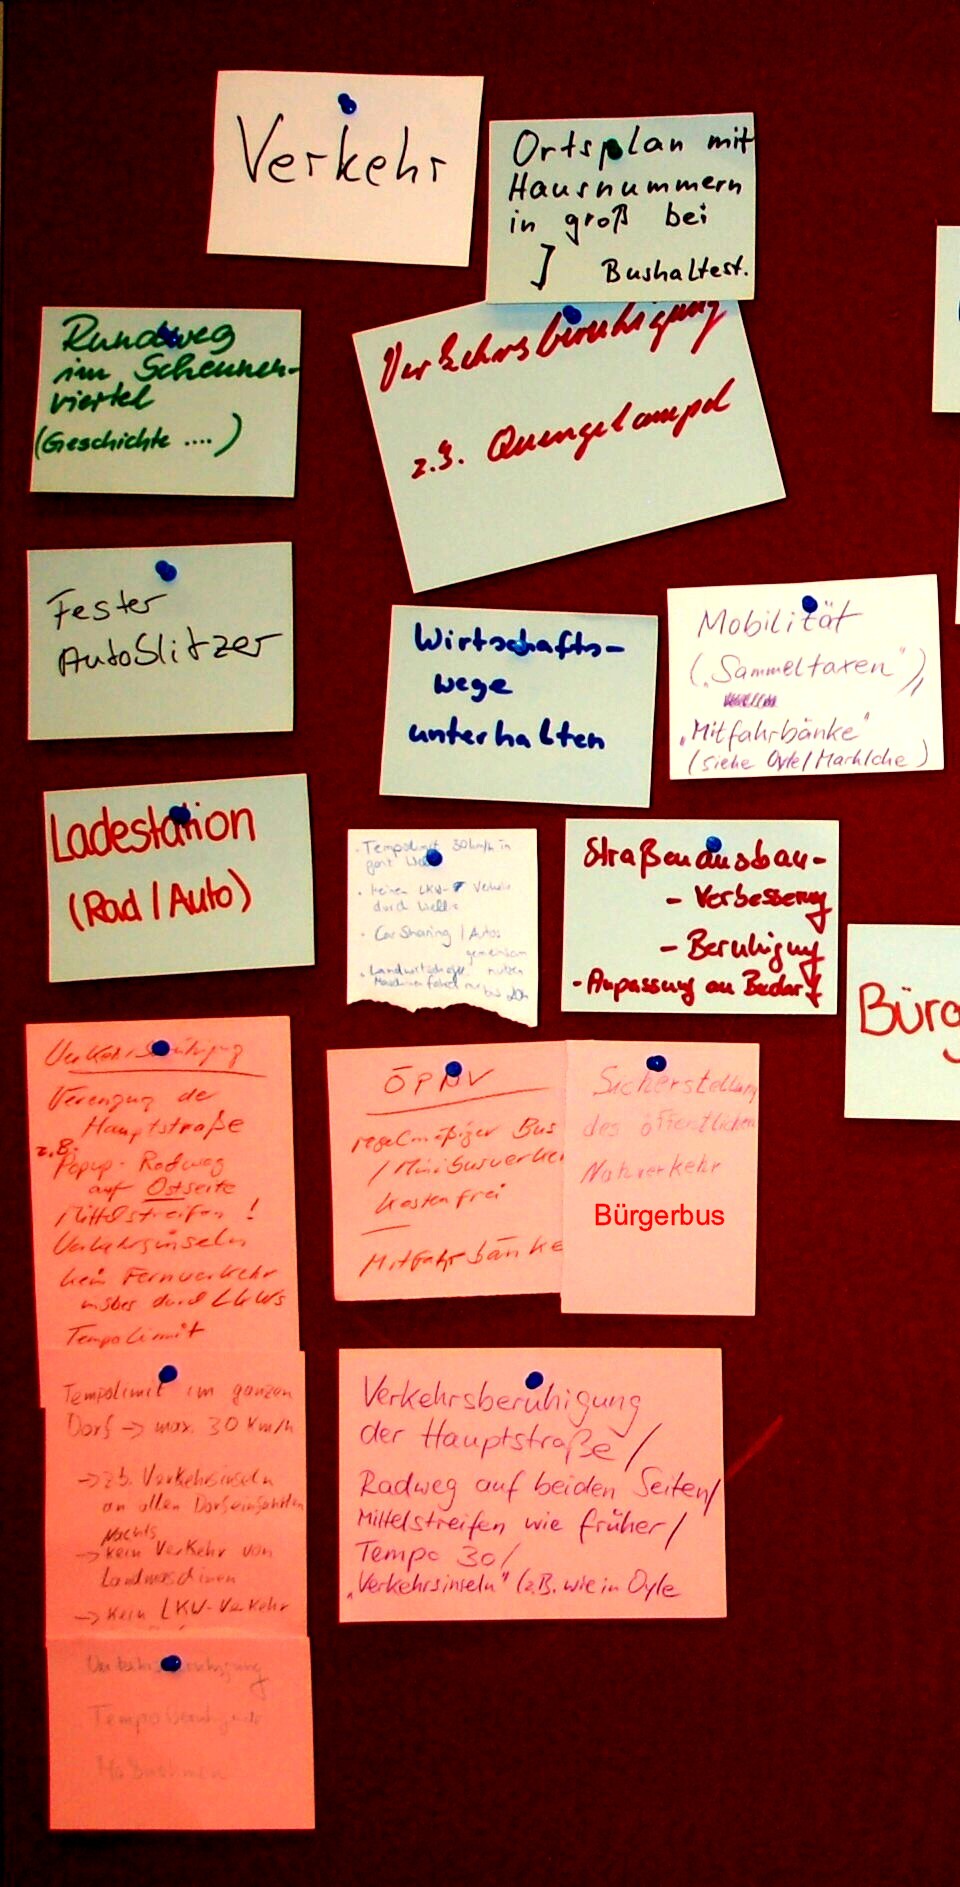 Verkehr
Ortsplan mit
Hausnummern
in groß bei
Bushaltest.
Rundweg
im Scheunen-
viertel
(Geschichte ....)
Verkehrsberuhigung
z.B. Quengelampel
Fester
AutoBlitzer
Wirtschafts-
wege
unterhalten
Mobilität
("Sammeltaxen"),
"Mitfahrbänke"
(siehe Oyle/Marklohe)
Ladestation
(Rad/Auto)
· Tempolimit 30 km/h in
· keinen LKW- Verkehr
durch Welle
· CarSharing / Autos
gemeinsam
nutzen
bis 20h
Straßenausbau-
- Verbesserung
- Beruhigung
- Anpassung an Bedarf
Bürg
Verkehrsberuhigung
Verengung der
Hauptstraße
z.B.
Popup-Radweg
auf Ostseite
Mittelstreifen!
Verkehrsinseln
kein Fernverkehr
insbes durch LKWs
Tempolimit
ÖPNV
regelmäßiger Bus
/Minibusverkeh
kostenfrei
Mitfahrbänke
Sicherstellung
des öffentlichen
Nahverkehr
Bürgerbus
Tempolimit im ganzen
Dorf -> max. 30 km/h
-> z.b. Verkehrsinseln
an allen Dorfeinfahrten
Nachts
-> kein Verkehr von
Landmaschinen
-> kein LKW-Verkehr
Verkehrsberuhigung der Hauptstraße /
Radweg auf beiden Seiten/
Mittelstreifen wie früher/
Tempo 30/
"Verkehrsinseln" (z.B. wie in Oyle
Verkehrsberuhigung
Maßnahmen